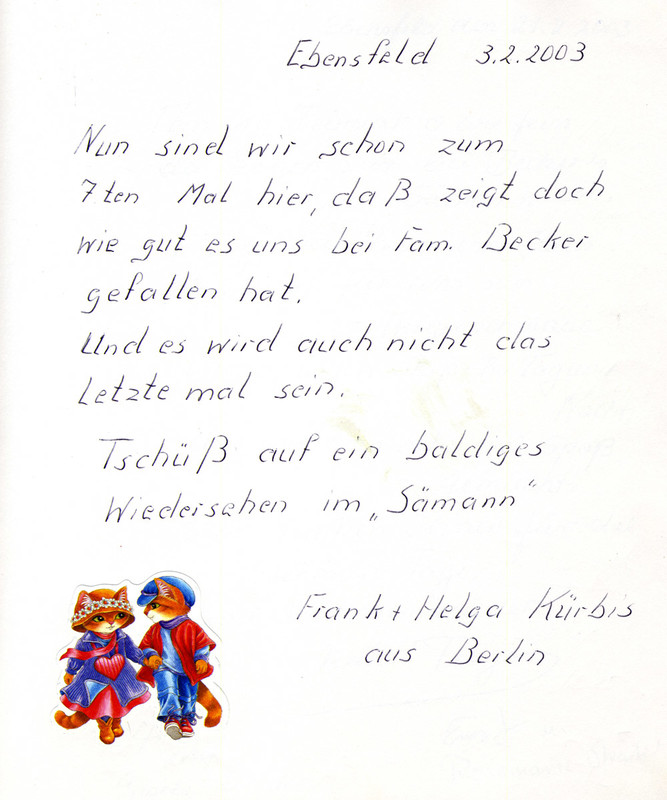 Ebensfeld 3.2.2003
Nun sind wir schon zum
7ten Mal hier, daß zeigt doch
wie gut es uns bei Fam. Becker
gefallen hat.
Und es wird auch nicht das
Letzte mal sein.
Tschüß auf ein baldiges
Wiedersehen im „Sämann“
Frank + Helga Kürbis
aus Berlin